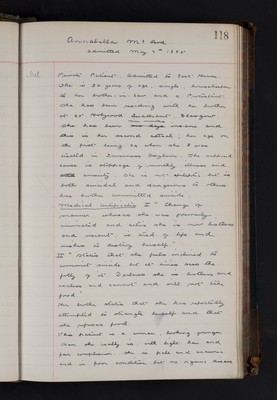 118
Annabella Mc
admitted May 4th 1895
Private Patient. Admitted to East House.
She is 30 years of age, single, housekeeper
to her brother-in-law and a Protestant.
She has been residing with her brother
at 25 Holyrood Glasgow
She has been insane and
this is her second attack, her age on
the first being 22 when she was
treated in Asylum. The
cause is stoppage of monthly illness and
anxiety. She is not epileptic but is
both suicidal and dangerous to others
her brother committed suicide
Medical Certificates I "Change of
manner whereas she was formerly
and active she is now listless
and vacant, is tired of life and
makes destroying herself."
II "States that she feels inclined to
commit suicide but at times sees the
folly of it. I observe she is listless and
careless and cannot and will not take
food."
Her brother states that she has repeatedly
attempted to strangle herself and that
she refuses food.
This patient is a woman looking younger
than she really is with light hair and
fair complexion. She is pale and anaemic
and in poor condition but no organic disease